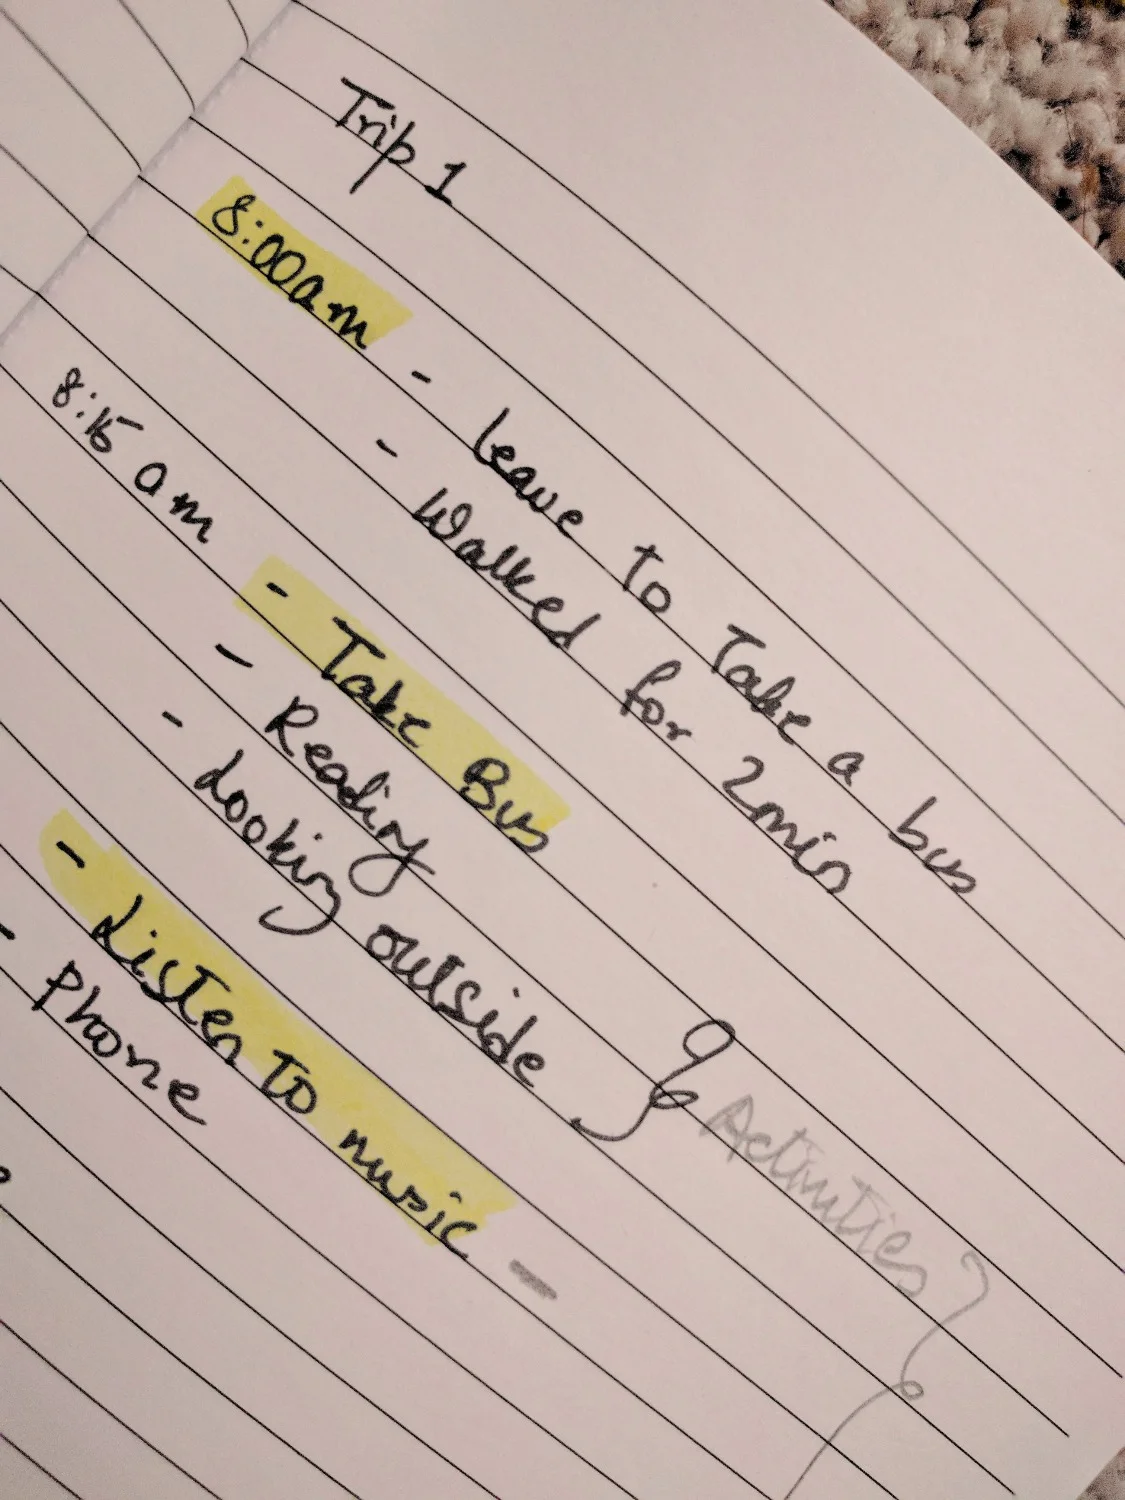 Trip 1
8:00am - leave to Take a bus
- Walked for 2min
8:15 am - Take Bus
- Reading
- Looking outside
Activities
- Listen to music -
- Phone